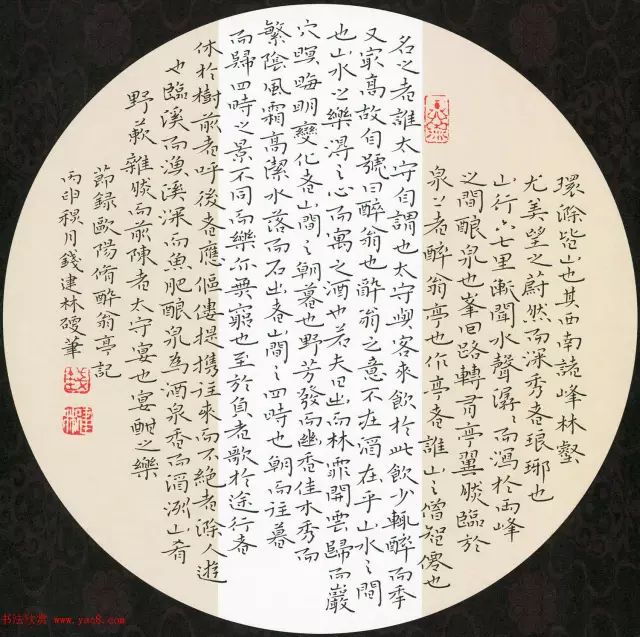 環滁皆山也其西南諸峰林壑
尤美望之蔚然而深秀者琅琊也
山行六七里漸聞水聲潺〻而瀉於兩峰
之間釀泉也峯回路轉有亭翼然臨於
泉上者醉翁亭也作亭者誰山之僧智僊也
名之者誰太守自謂也太守與客來飲於此飲少輒醉而季
又最高故自號曰醉翁也醉翁之意不在酒在乎山水之間
也山水之樂得之心而寓之酒也若夫日出而林霏開雲歸而巖
穴暝晦明變化者山間之朝暮也野芳發而幽香佳木秀而
繁陰風霜高潔水落而石出者山間之四時也朝而往暮
而歸四時之景不同而樂亦無窮也至於負者歌於途行者
休於樹前者呼後者應傴僂提攜往來而不絕者滁人遊
也臨溪而漁溪深而魚肥釀泉為酒泉香而酒洌山肴
野蔌雜然而前陳者太守宴也宴酣之樂
節錄歐陽脩醉翁亭記
丙申穐月錢建林硬筆
书法欣赏 www.yac8.com